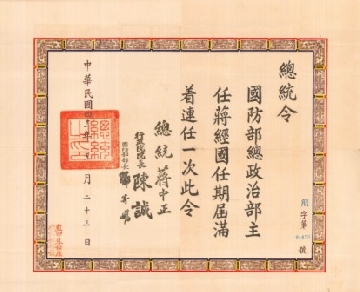 總統令
國防部總政治部主
任蔣經國任期屆滿
着連任一次此令
總統蔣中正
行政院院長陳誠
中華民國
月二十三日
字第
號